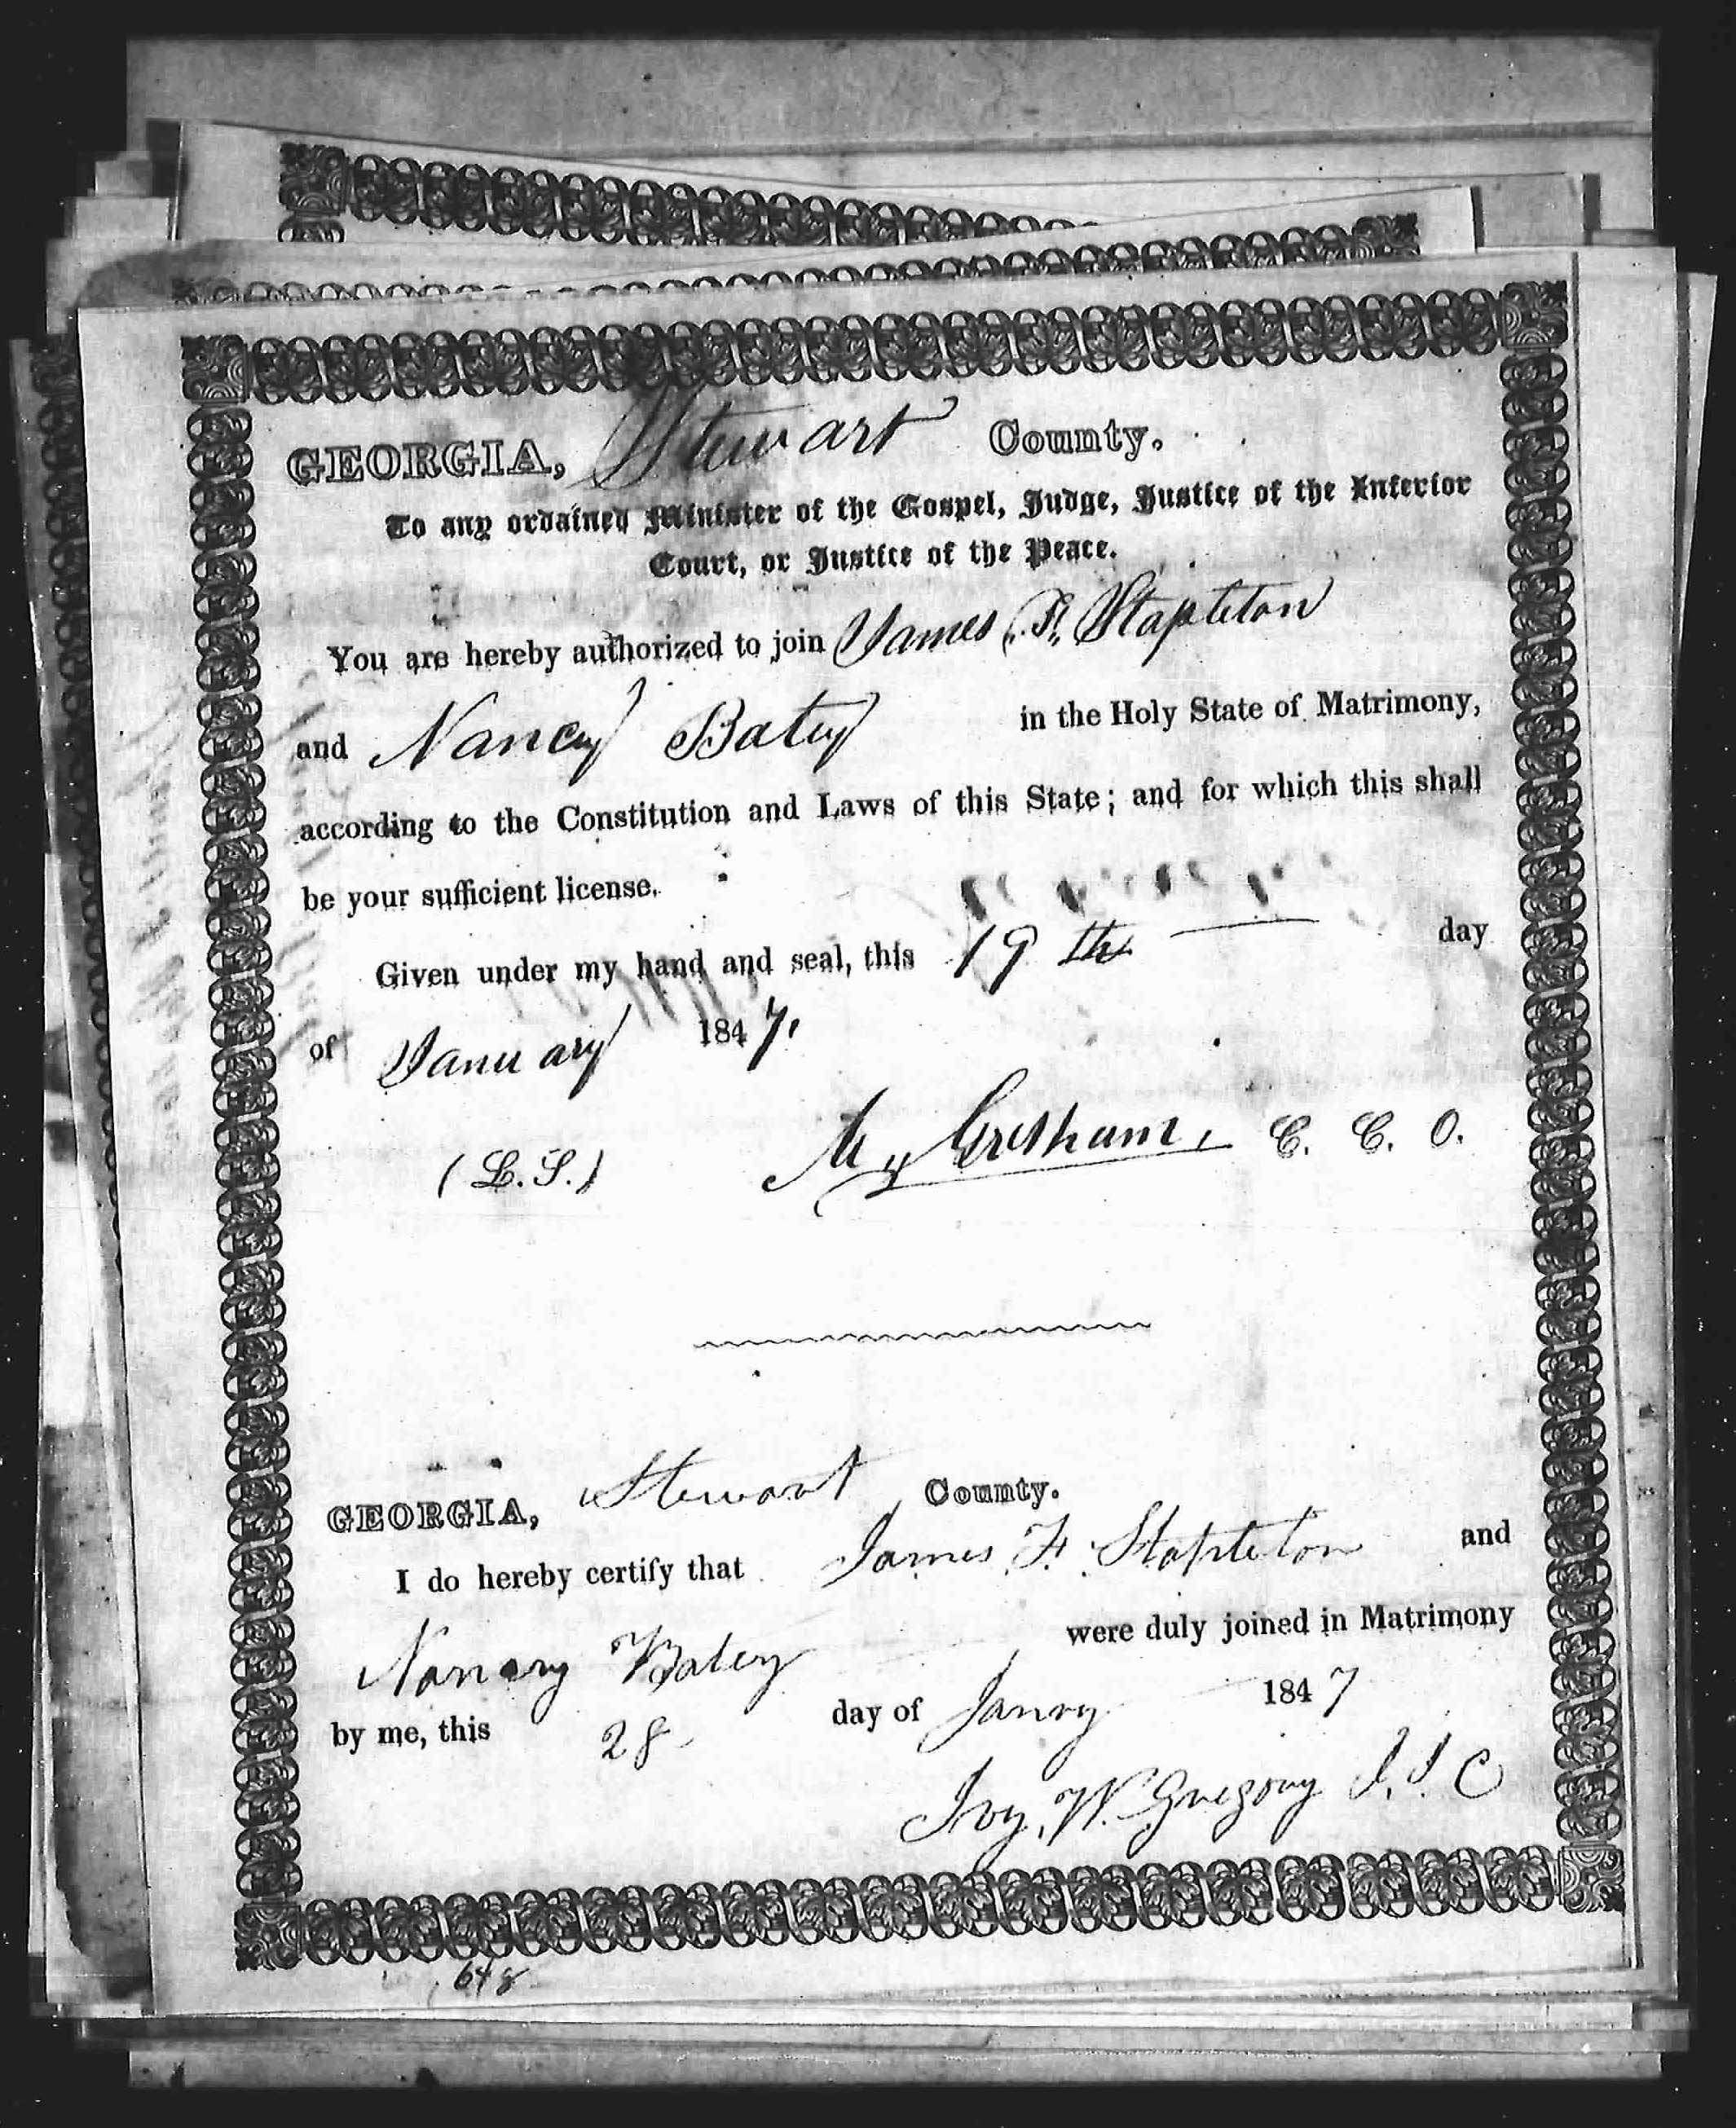 GEORGIA, Stewart County.
To any ordained Minister of the Gospel, Judge, Justice of the Inferior
Court, or Justice of the Peace.
You are hereby authorized to join James F. Stapleton
and Nancy Batey in the Holy State of Matrimony,
according to the Constitution and Laws of this State; and for which this shall
be your sufficient license.
Given under my hand and seal, this 19th day
of January 1847.
(L.S.) M Gresham, C. C. O.
GEORGIA, Stewart County.
I do hereby certify that James F. Stapleton and
Nancy Batey were duly joined in Matrimony
by me, this 28 day of Janry 1847
Ivy. W. Gregory J. I. C
648